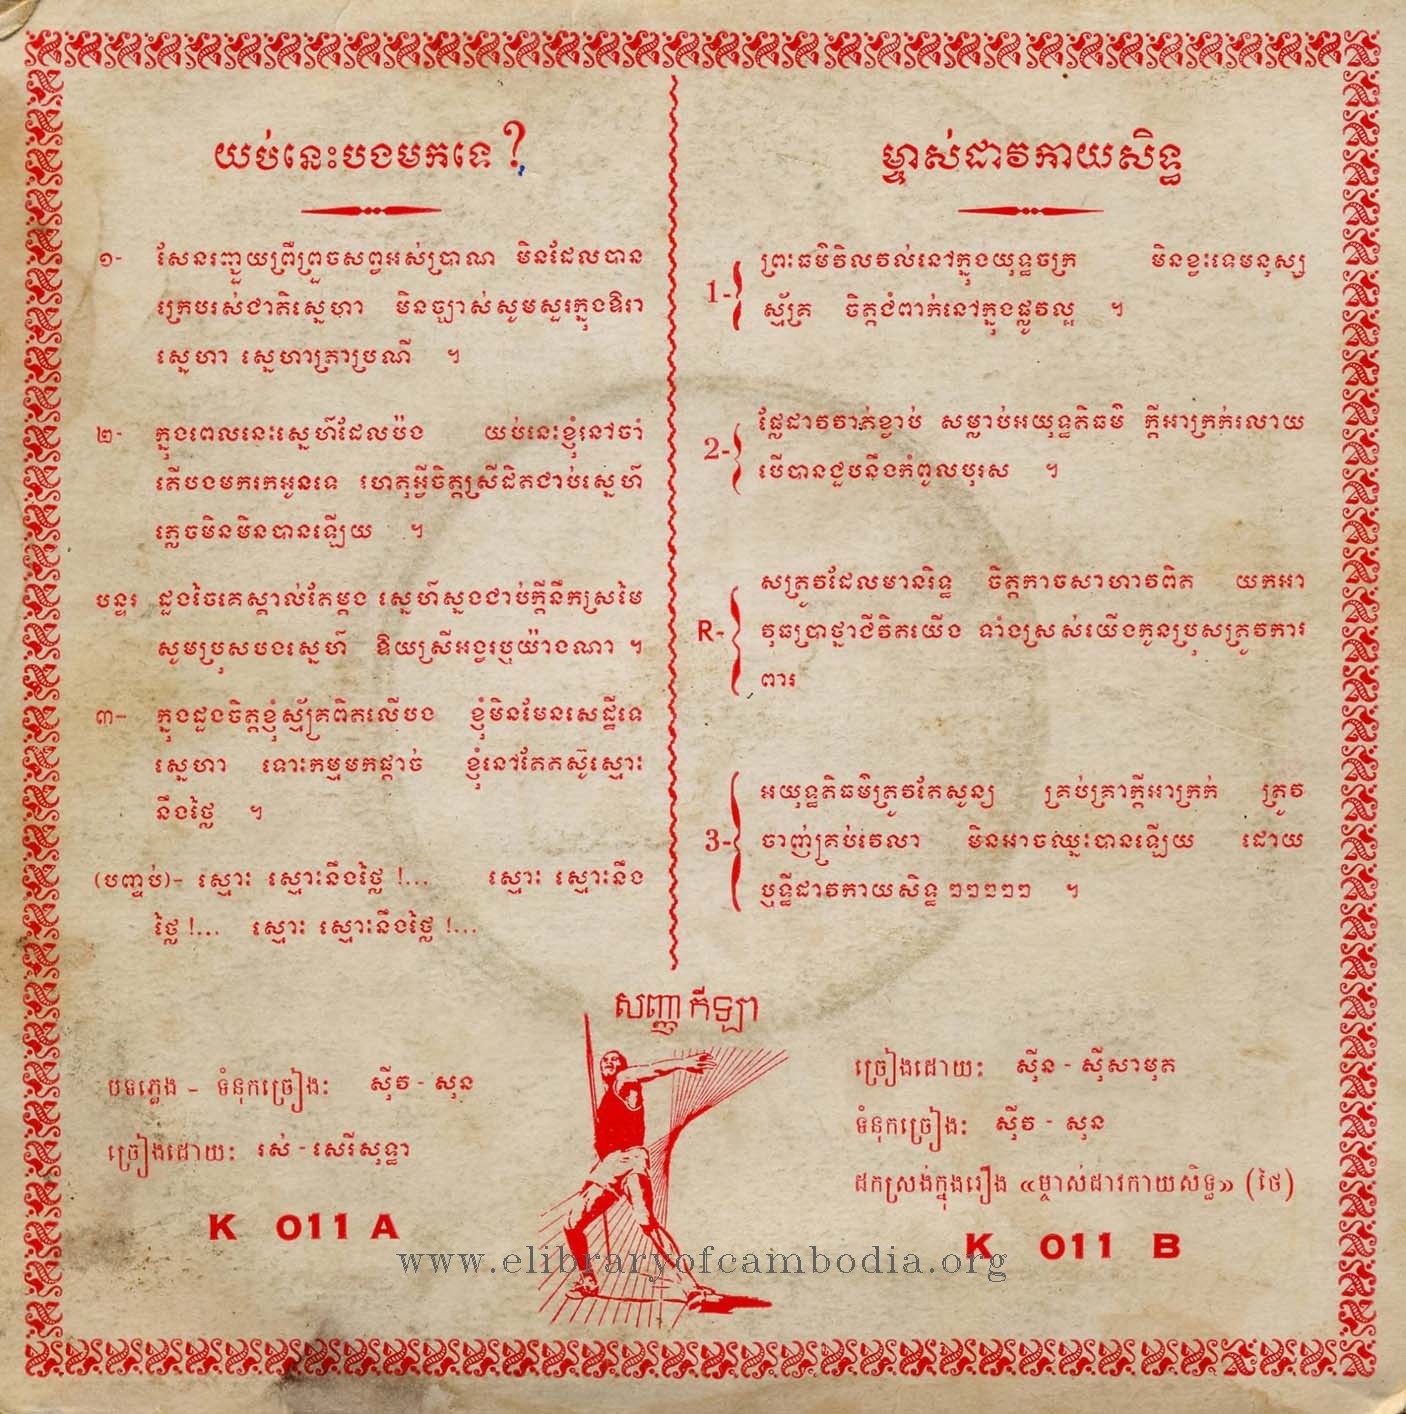 យប់នេះបងមកទេ?
១- សែនរញ្ជួយព្រឺព្រួចសព្វអស់ប្រាណ មិនដែលបាន
ក្រេបរស់ជាតិស្នេហា មិនច្បាស់សូមសួរក្នុងឱរា
ស្នេហា ស្នេហាត្រាប្រណី ។
២- ក្នុងពេលនេះស្នេហ៍ដែលប៉ង យប់នេះខ្ញុំនៅចាំ
តើបងមករកអូនទេ ហេតុអ្វីចិត្តស្រីដិតជាប់ស្នេហ៍
ភ្លេចមិនមិនបានឡើយ ។
បន្ទរ ដួងចៃគេស្គាល់តែម្តង ស្នេហ៍ស្នងជាប់ក្តីនឹកស្រមៃ
សូមប្រុសបងស្នេហ៍ ឱយស្រីអង្វរឬយ៉ាងណា ។
៣- ក្នុងដួងចិត្តខ្ញុំស្ម័គ្រពិតលើបង ខ្ញុំមិនមែនសេដ្ឋីទេ
ស្នេហា ទោះកម្មមកផ្តាច់ ខ្ញុំនៅតែតស៊ូស្មោះ
នឹងថ្លៃ ។
(បញ្ចប់)- ស្មោះ ស្មោះនឹងថ្លៃ !... ស្មោះ ស្មោះនឹង
ថ្លៃ !... ស្មោះ ស្មោះនឹងថ្លៃ !...
បទភ្លេង - ទំនុកច្រៀង: ស៊ីវ - សុន
ច្រៀងដោយ: រស់ - សេរីសុទ្ធា
K 011 A
ម្ចាស់ដាវកាយសិទ្ធ
1- ព្រះធម៌វិលវល់នៅក្នុងយុទ្ធចក្រ មិនខ្វះទេមនុស្ស
ស្ម័គ្រ ចិត្តជំពាក់នៅក្នុងផ្លូវល្អ ។
2- ផ្លែដាវវាត់ខ្វាប់ សម្លាប់អយុទ្ធតិធម៌ ក្តីអាក្រក់រលាយ
បើបានជួបនឹងកំពូលបុរស ។
R- សត្រូវដែលមានរិទ្ធ ចិត្តកាចសាហាវពិត យកអា
វុធប្រាថ្នាជីវិតយើង ទាំងស្រស់យើងកូនប្រុសត្រូវការ
ពារ
3- អយុទ្ធតិធម៌ត្រូវតែសូន្យ គ្រប់គ្រាក្តីអាក្រក់ ត្រូវ
ចាញ់គ្រប់វេលា មិនអាចឈ្នះបានឡើយ ដោយ
ឫទ្ធីដាវកាយសិទ្ធ ៗៗៗៗៗ ។
សញ្ញា កីឡា
ច្រៀងដោយ: ស៊ីន - ស៊ីសាមុត
ទំនុកច្រៀង: ស៊ីវ - សុន
ដកស្រង់ក្នុងរឿង «ម្ចាស់ដាវកាយសិទ្ធ» (ថៃ)
K 011 B
www.elibraryofcambodia.org